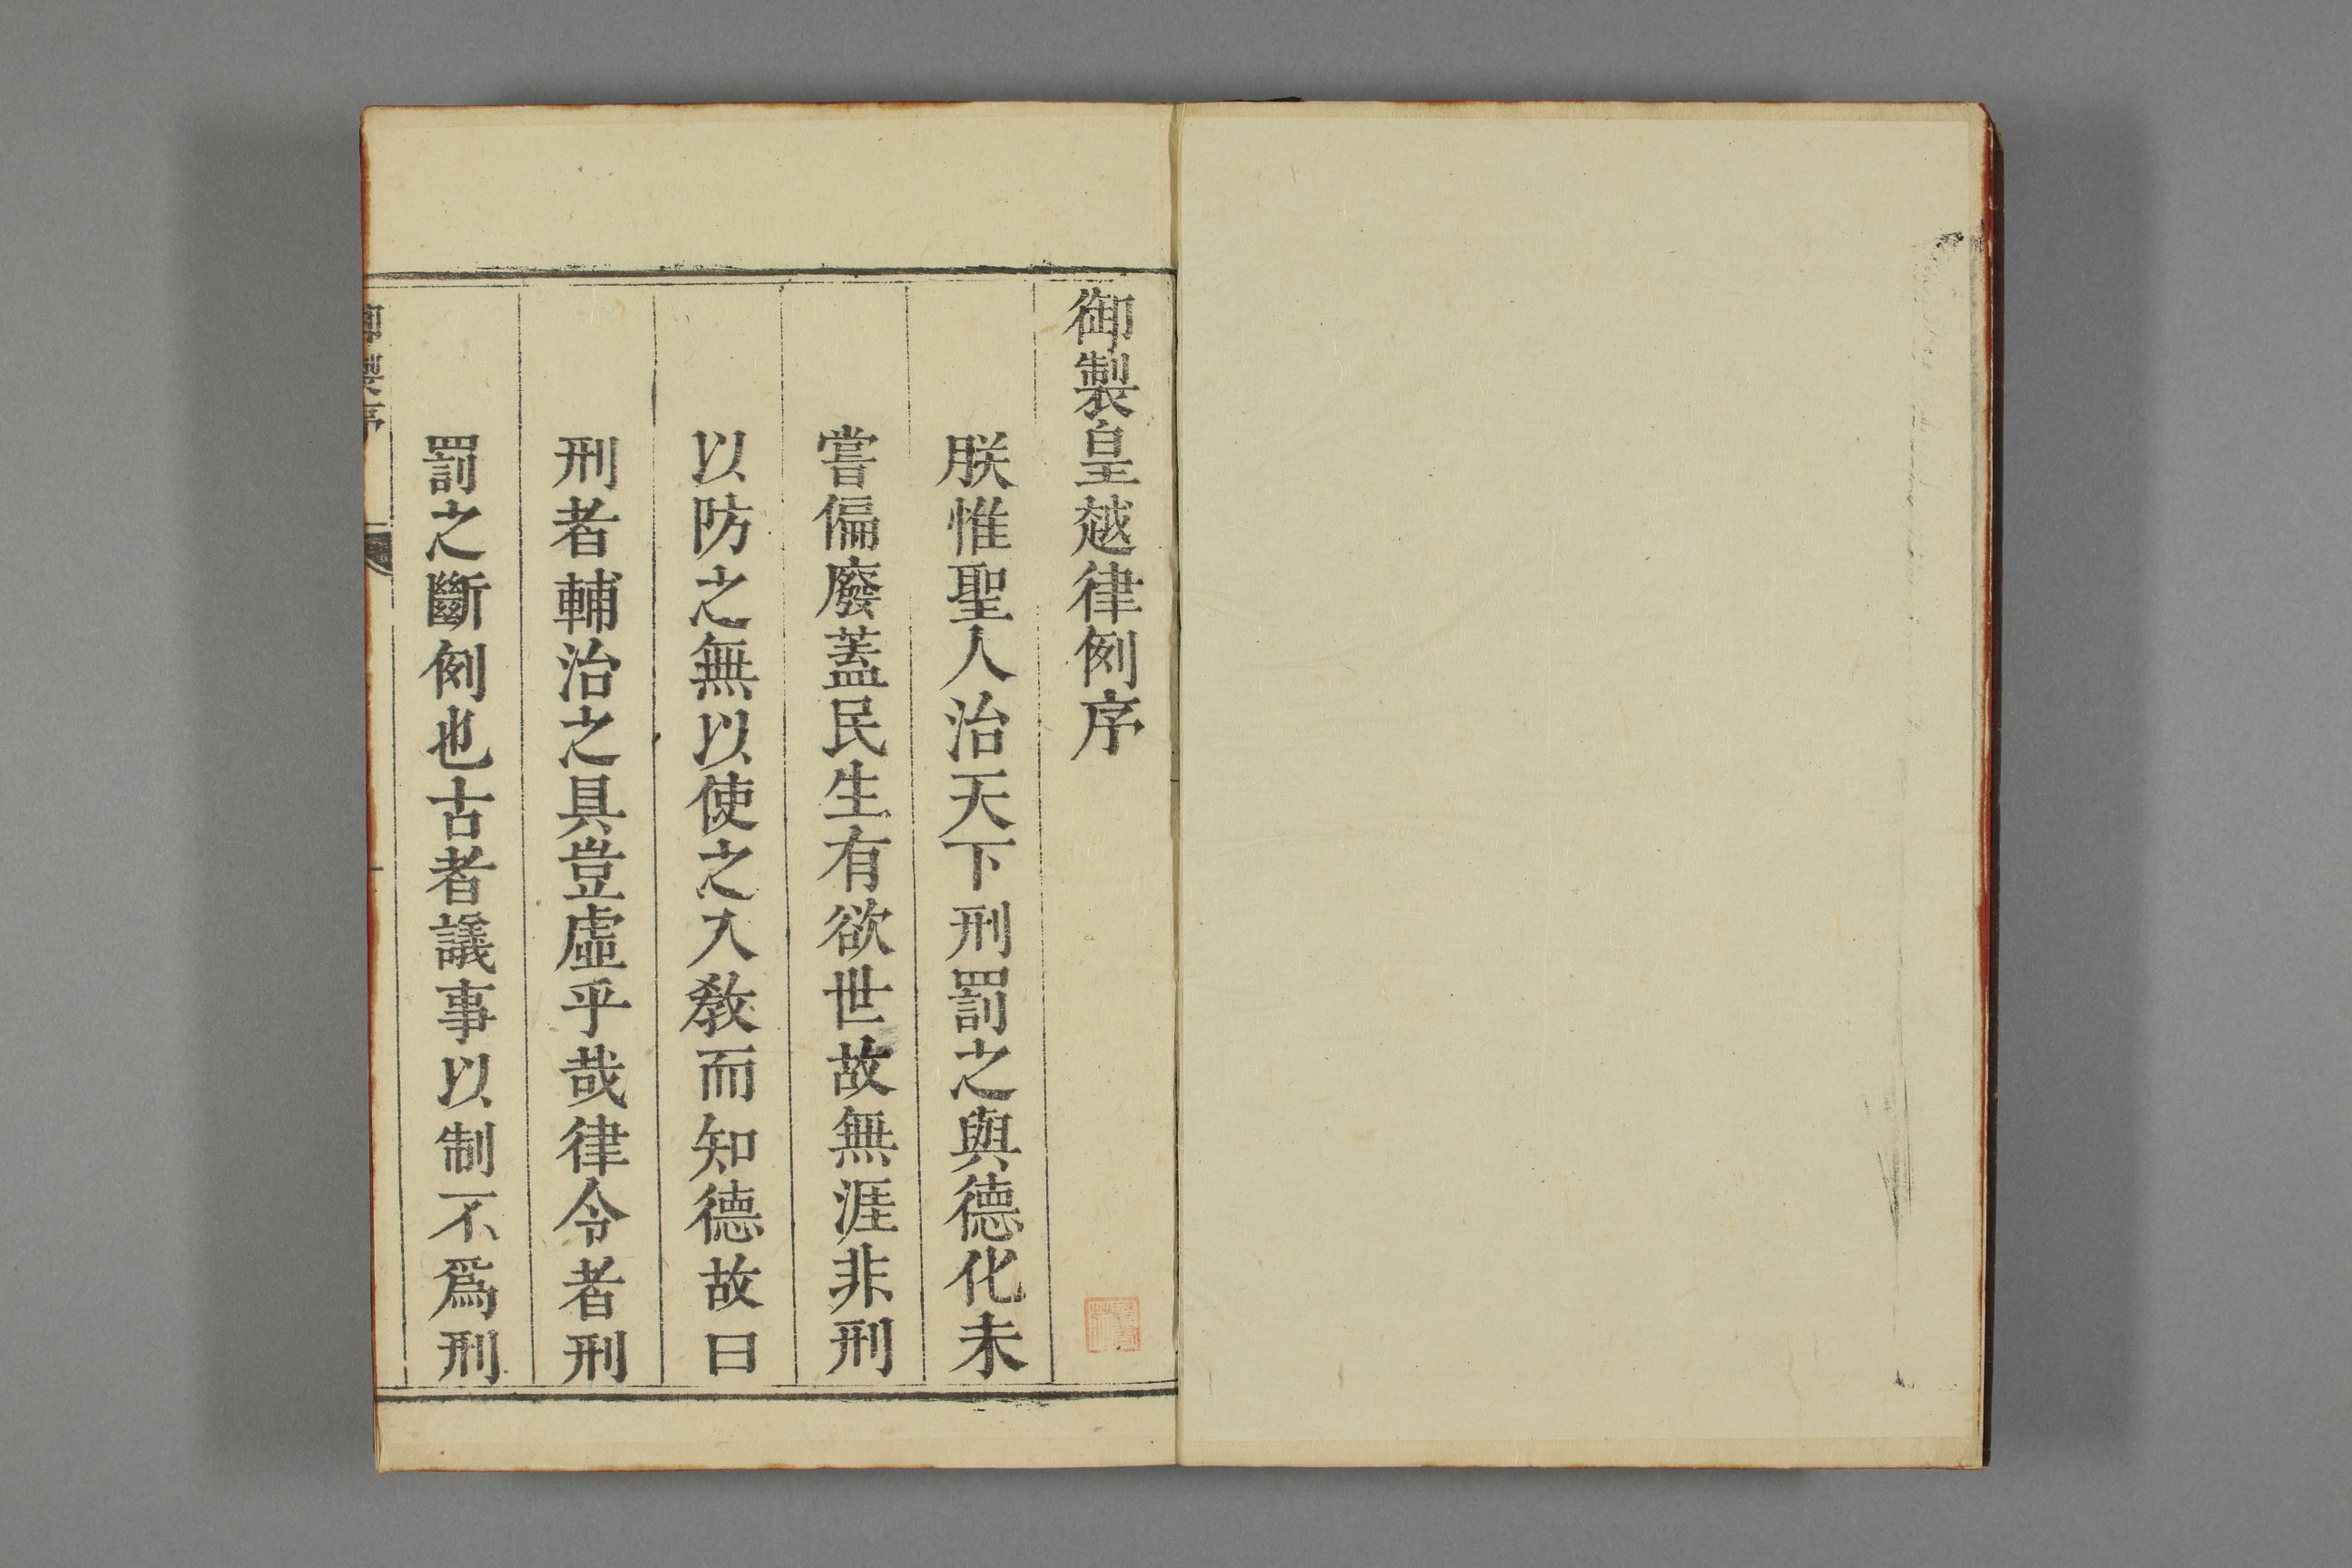 御製皇越律例序
朕惟聖人治天下刑罰之與德化未
嘗偏廢蓋民生有欲世故無涯非刑
以防之無以使之入敎而知德故曰
刑者輔治之具豈虛乎哉律令者刑
罰之斷例也古者議事以制不爲刑
御製序